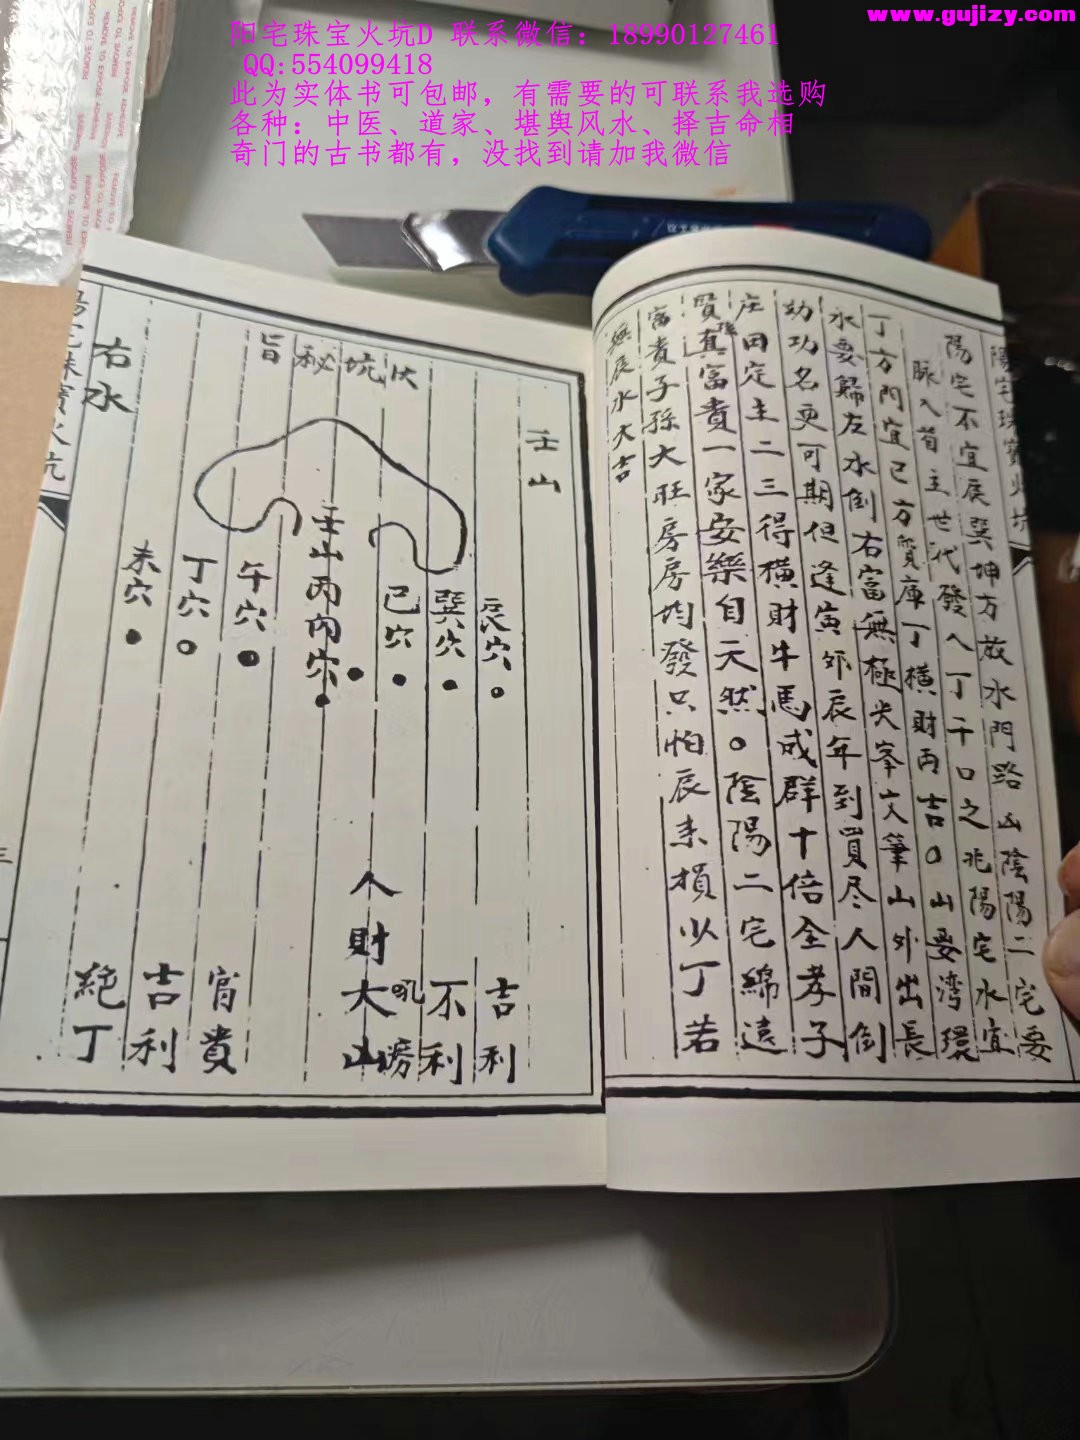 www.gujizy.com
阳宅珠宝火坑D 联系微信：18990127461
QQ:554099418
此为实体书可包邮，有需要的可联系我选购
各种：中医、道家、堪舆风水、择吉命相
奇门的古书都有，没找到请加我微信
陽宅珠寶火坑
陽宅不宜辰巽坤方放水門路山陰陽二宅要
脉入首主世代發人丁千口之兆陽宅水宜
丁方門宜巳方貿庫丁橫財丙吉〇山要湾環
水要歸左水倒右富無極尖峯文筆山外出長
幼功名更可期但逢寅卯辰年到買尽人間倒
庄田定主二三得橫財牛馬成群十倍全孝子
賢孫真富貴一家安樂自天然。陰陽二宅綿遠
富貴子孫大旺房房均發只怕辰未損少丁若
無辰水大吉
壬山
火坑秘旨
辰穴
巽穴
巳穴
壬山丙向穴
午穴
丁穴
未穴
吉利
不利
人財大
富貴
吉利
絕丁
右水
陽宅珠寶火坑
三